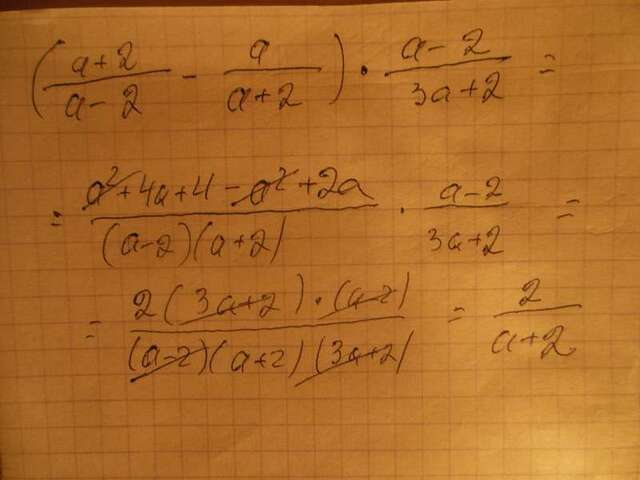 ((a+2)/(a-2) - a/(a+2)) · (a-2)/(3a+2) =
= (a²+4a+4-a²+2a)/((a-2)(a+2)) · (a-2)/(3a+2) =
= (2(3a+2)·(a-2))/((a-2)(a+2)(3a+2)) = 2/(a+2)